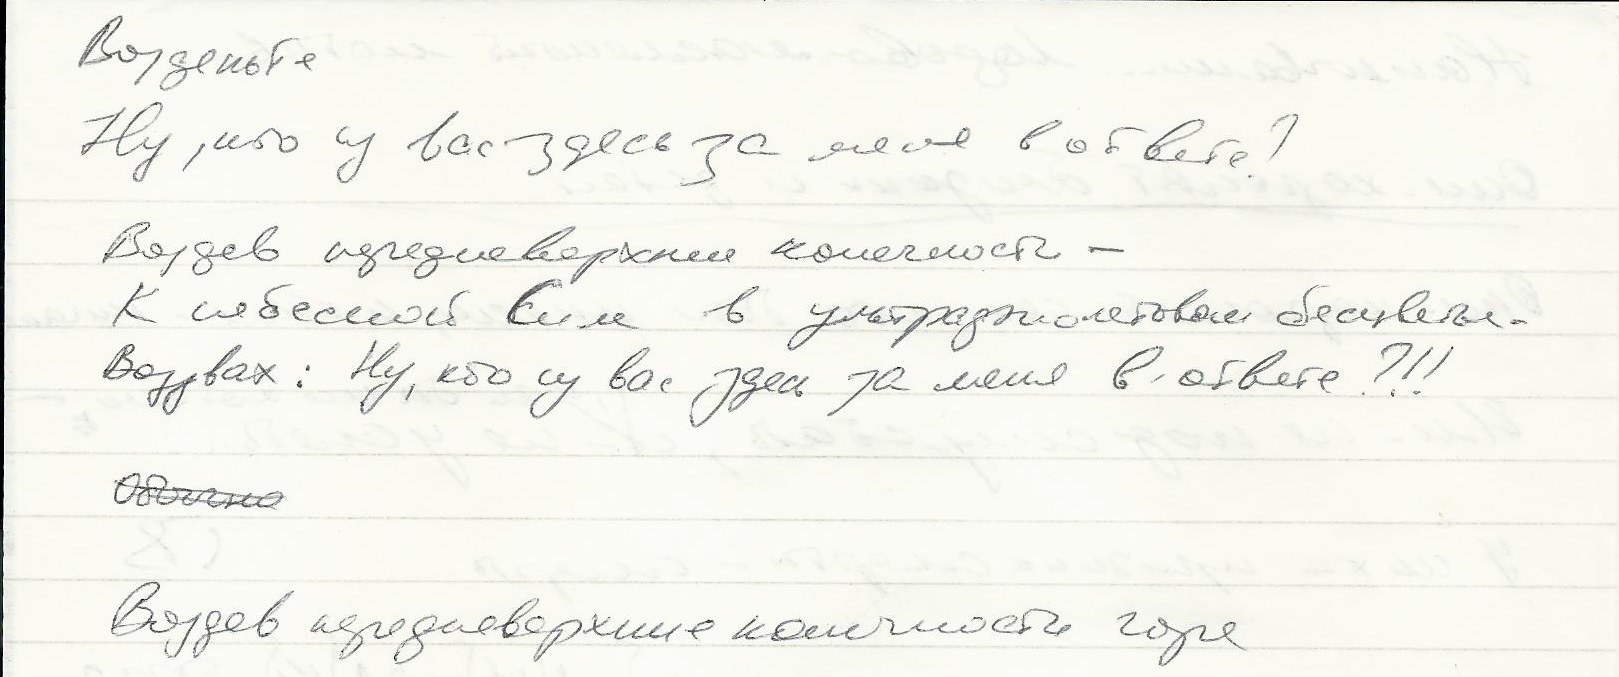 Возденьте
Ну, кто у вас здесь за меня в ответе?
Воздев передневерхние конечности –
К небесной Сини в ультрафиолетовом бесцветьи.
Воззвах: Ну, кто у вас здесь за меня в ответе?!!
Обычно
Воздев передневерхние конечности горе